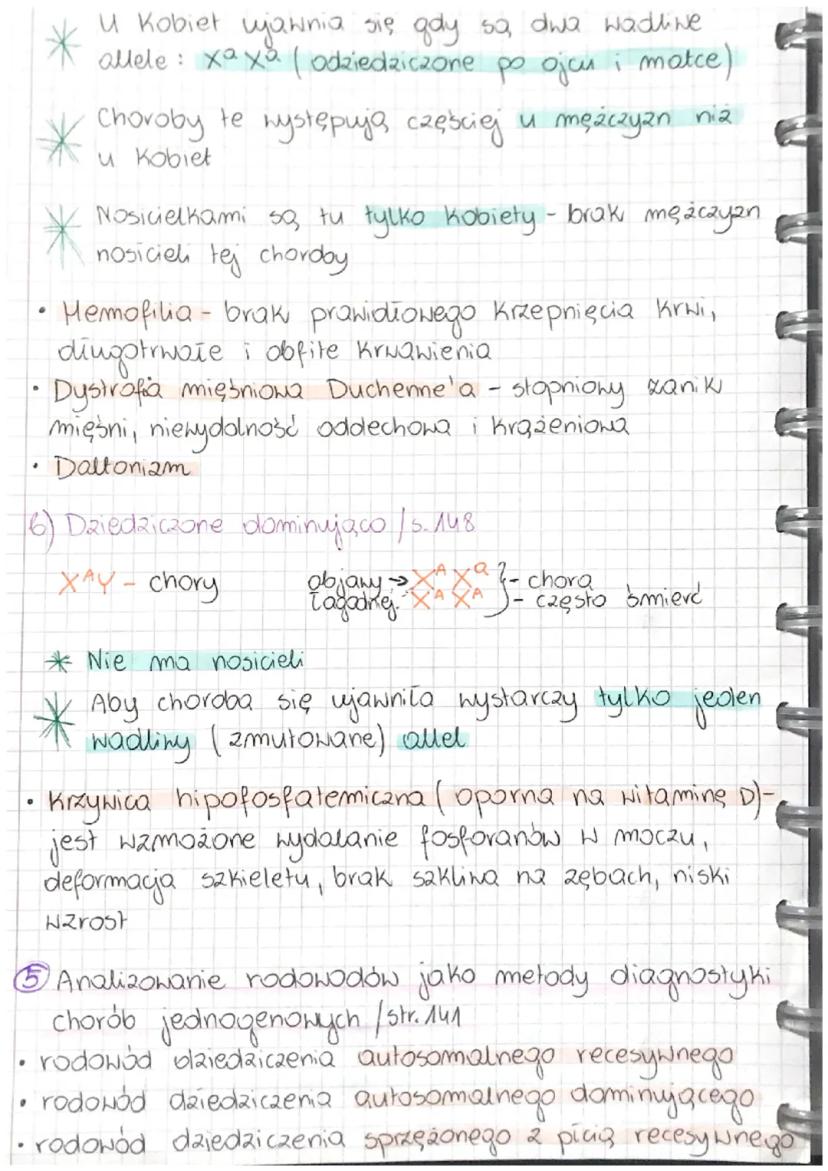 * U Kobiet ujawnia się gdy są dwa wadliwe
allele: Xᵃ Xᵃ (odziedziczone po ojcu i matce)
* Choroby te występują częściej u mężczyzn niż
u Kobiet
* Nosicielkami są tu tylko kobiety - brak mężczyzn
nosicieli tej choroby
• Hemofilia - brak prawidłowego Krzepnięcia Krwi,
długotrwałe i obfite Krwawienia
• Dystrofia mięśniowa Duchenne'a - stopniowy zanik
mięśni, niewydolność oddechowa i krążeniowa
• Daltonizm
6) Dziedziczone dominująco /s.148
XᴬY - chory objawy → Xᴬ Xᵃ } - chora
łagodniej. Xᴬ Xᴬ - często śmierć
* Nie ma nosicieli
* Aby choroba się ujawniła wystarczy tylko jeden
wadliwy (zmutowane) allel
• Krzywica hipofosfatemiczna (oporna na witaminę D)-
jest wzmożone wydalanie fosforanów w moczu,
deformacja szkieletu, brak szkliwa na zębach, niski
wzrost
5 Analizowanie rodowodów jako metody diagnostyki
chorób jednogenowych /str. 141
• rodowód dziedziczenia autosomalnego recesywnego
• rodowód dziedziczenia autosomalnego dominującego
• rodowód dziedziczenia sprzężonego z płcią recesywnego